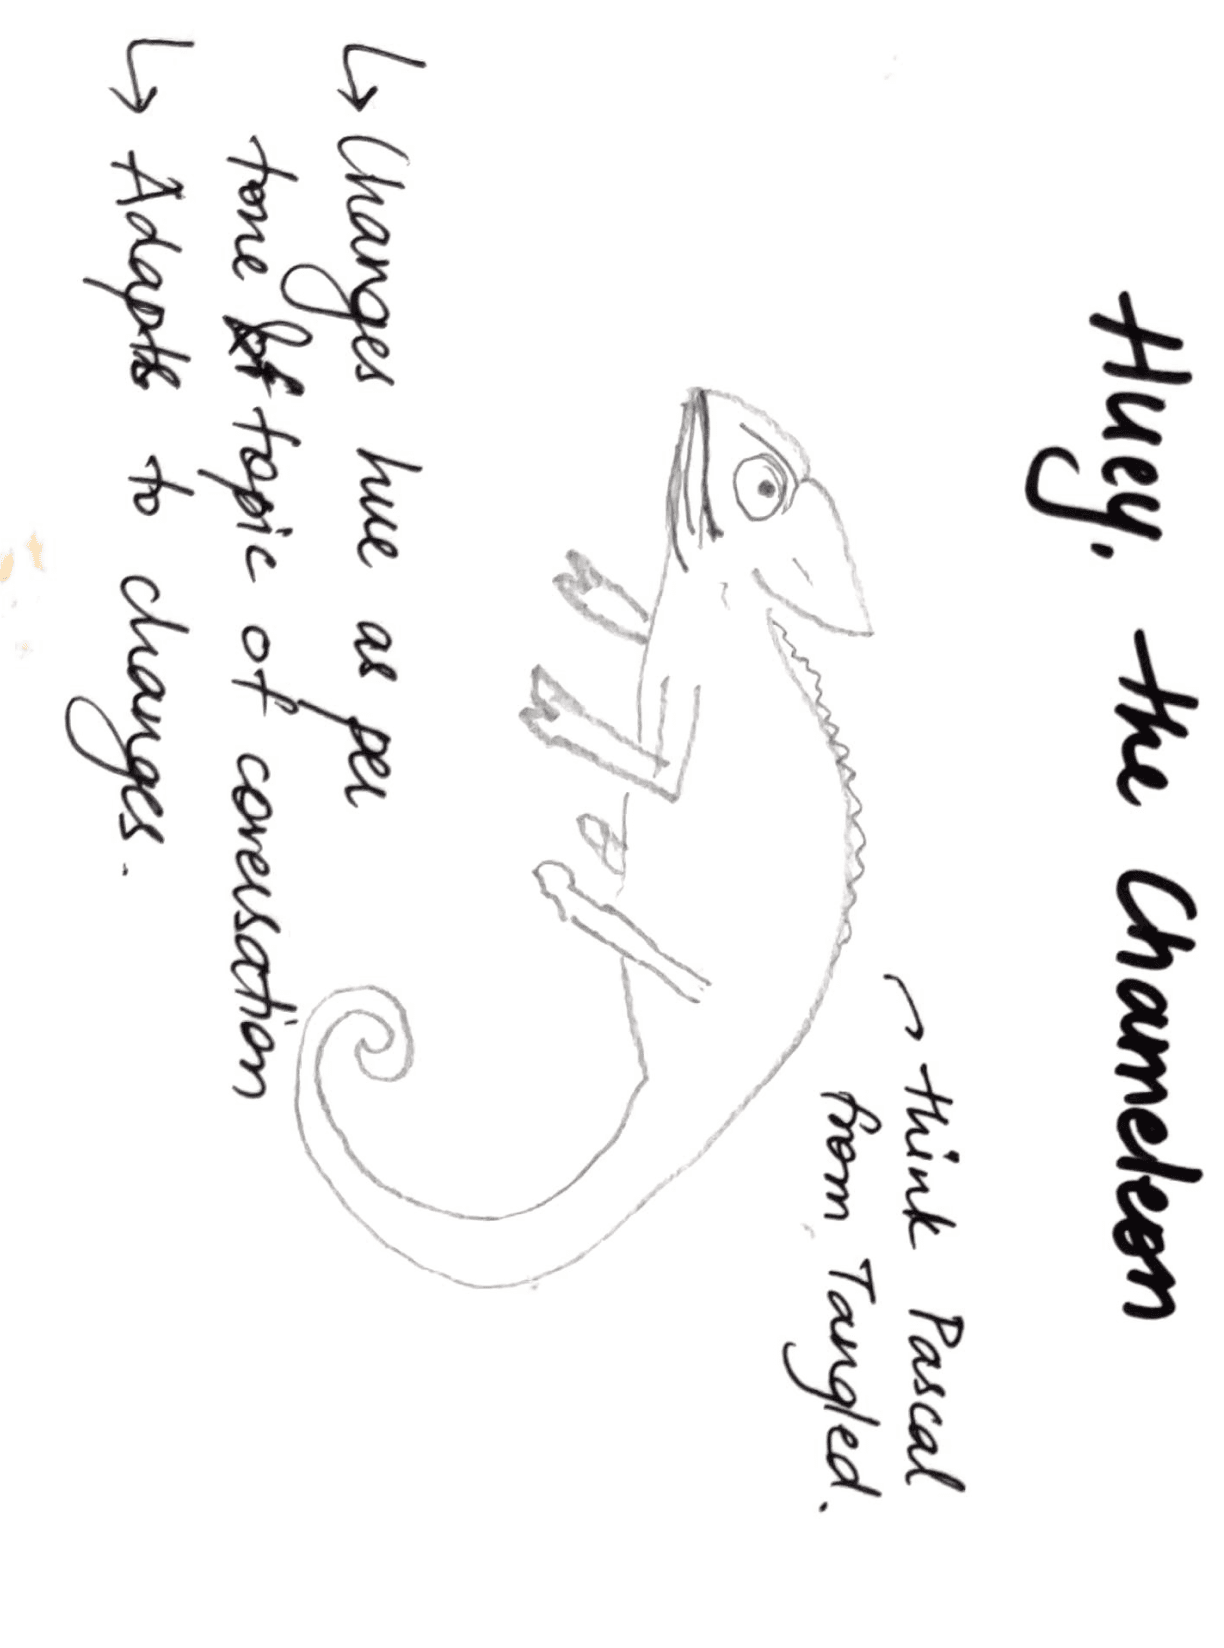 Huey. the Chameleon
think Pascal
from Tangled.
↳ Changes hue as per
tone topic of conversation
↳ Adapts to changes.